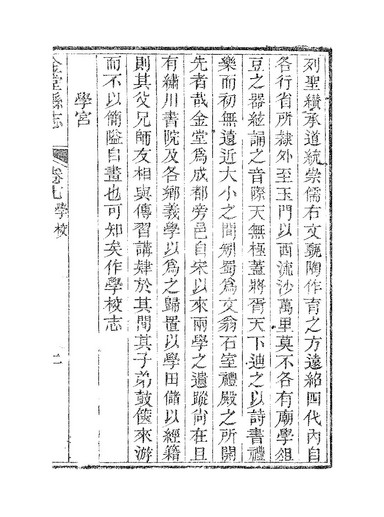 列聖纘承道統崇儒右文甄陶作育之方遠紹四代內自
各行省所隸外至玉門以西流沙萬里莫不各有廟學俎
豆之器絃誦之音際天無極蓋將胥天下迪之以詩書禮
樂而初無遠近大小之間矧蜀為文翁石室禮殿之所開
先者哉金堂為成都旁邑自宋以來兩學之遺蹤尚在且
有繡川書院及各鄉義學以為之歸置以學田儲以經籍
則其父兄師友相與傳習講肄於其間其子弟鼓篋來游
而不以簡隘自畫也可知矣作學校志
學宮
金堂縣志
卷七學校
二